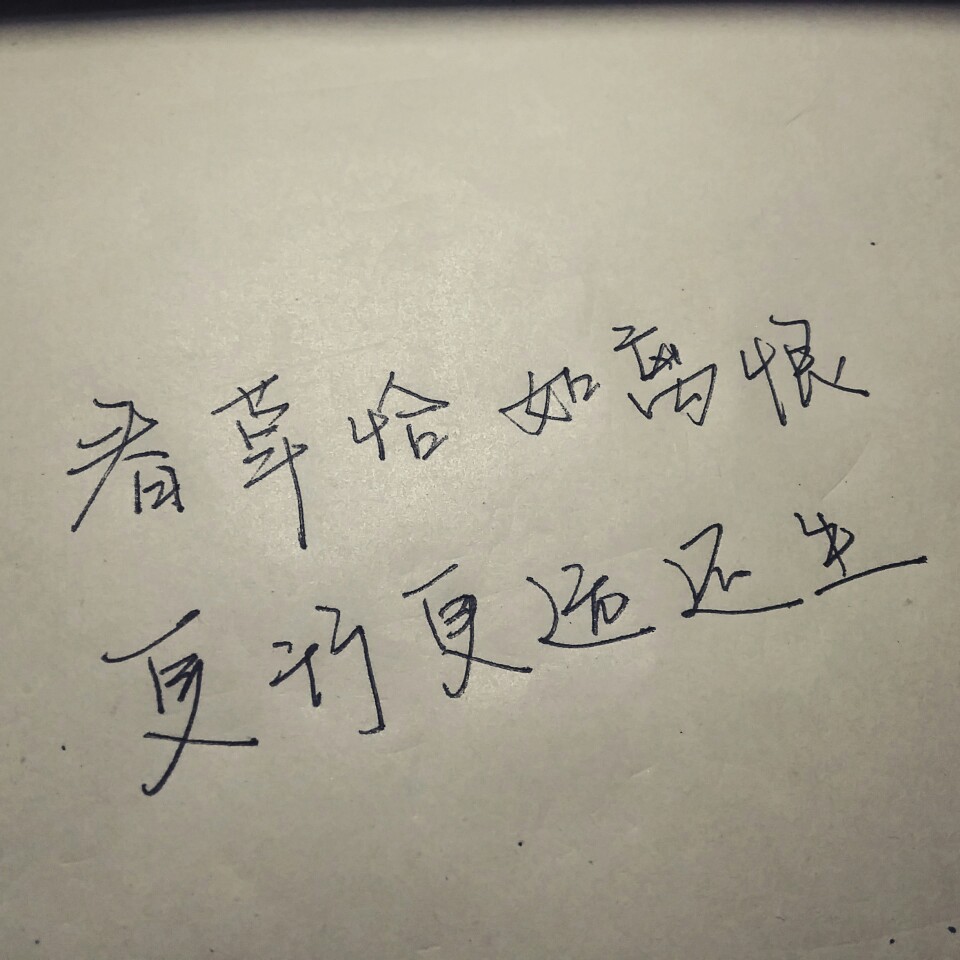 春草恰如离恨
更行更远还生